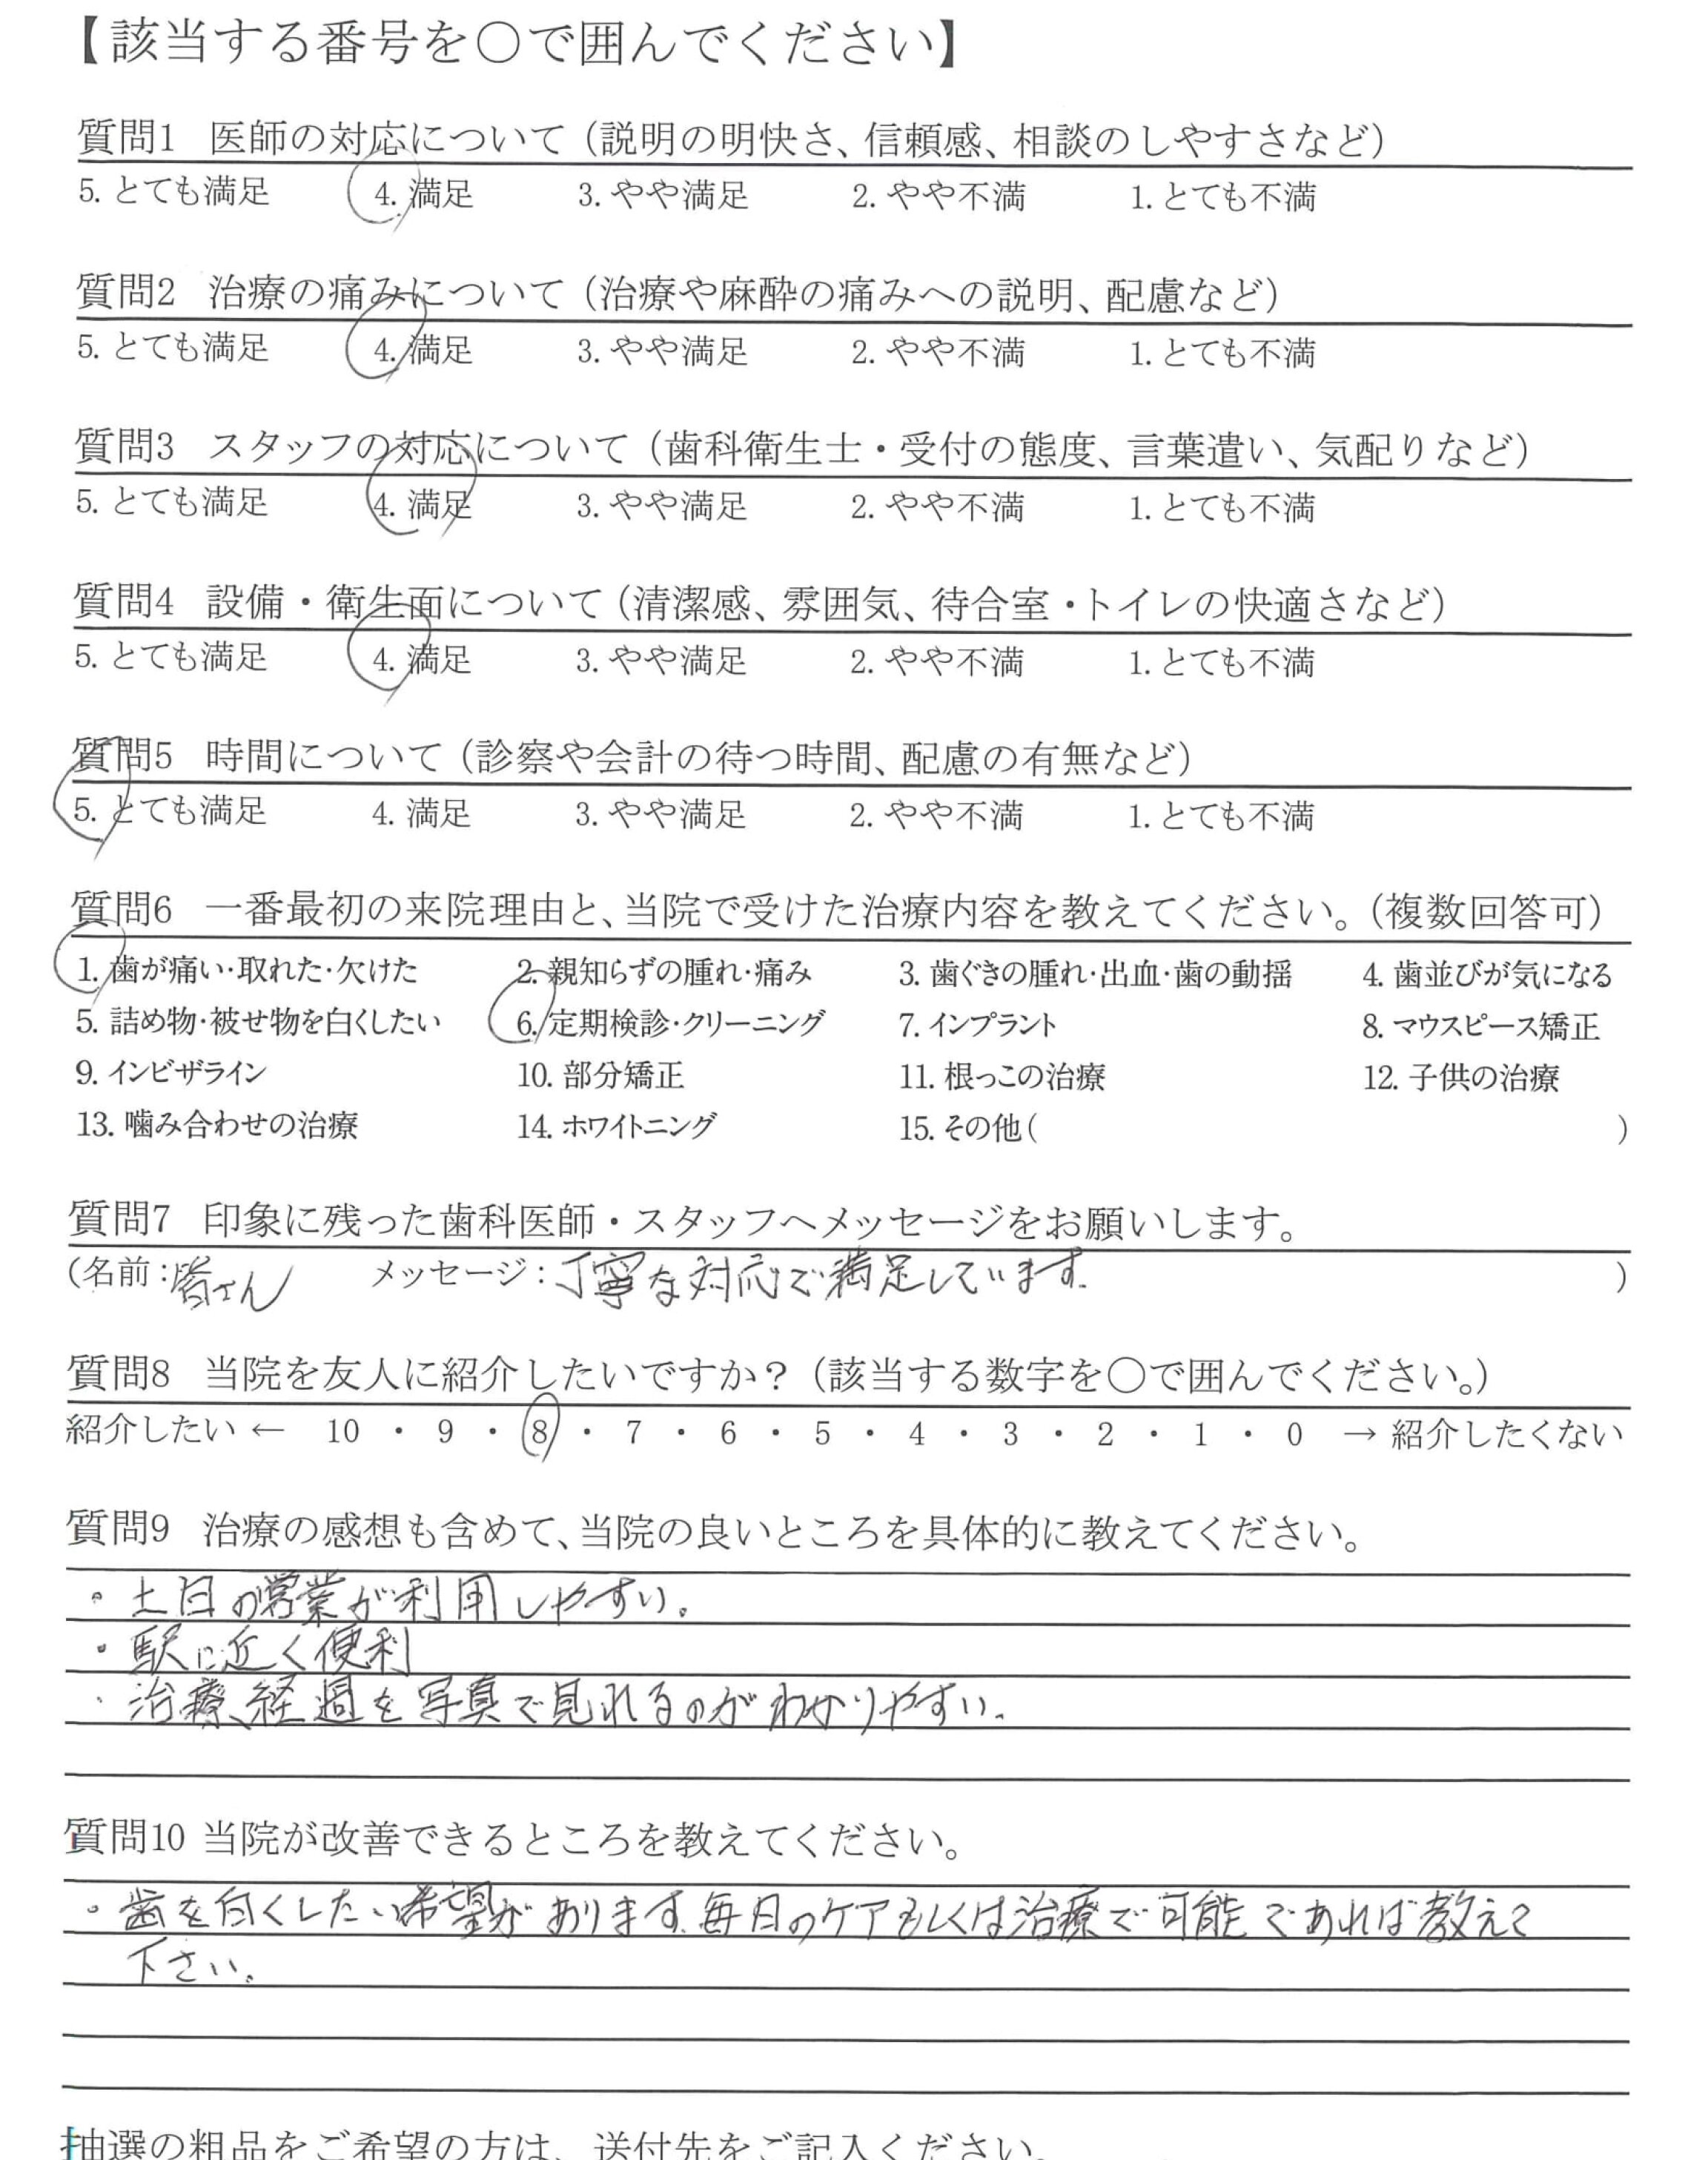 【該当する番号を〇で囲んでください】
質問1 医師の対応について（説明の明快さ、信頼感、相談のしやすさなど）
5. とても満足 4. 満足 3. やや満足 2. やや不満 1. とても不満
質問2 治療の痛みについて（治療や麻酔の痛みへの説明、配慮など）
5. とても満足 4. 満足 3. やや満足 2. やや不満 1. とても不満
質問3 スタッフの対応について（歯科衛生士・受付の態度、言葉遣い、気配りなど）
5. とても満足 4. 満足 3. やや満足 2. やや不満 1. とても不満
質問4 設備・衛生面について（清潔感、雰囲気、待合室・トイレの快適さなど）
5. とても満足 4. 満足 3. やや満足 2. やや不満 1. とても不満
質問5 時間について（診察や会計の待つ時間、配慮の有無など）
5. とても満足 4. 満足 3. やや満足 2. やや不満 1. とても不満
質問6 一番最初の来院理由と、当院で受けた治療内容を教えてください。（複数回答可）
1. 歯が痛い・取れた・欠けた 2. 親知らずの腫れ・痛み 3. 歯ぐきの腫れ・出血・歯の動揺 4. 歯並びが気になる
5. 詰め物・被せ物を白くしたい 6. 定期検診・クリーニング 7. インプラント 8. マウスピース矯正
9. インビザライン 10. 部分矯正 11. 根っこの治療 12. 子供の治療
13. 噛み合わせの治療 14. ホワイトニング 15. その他（ ）
質問7 印象に残った歯科医師・スタッフへメッセージをお願いします。
（名前：皆さん メッセージ：丁寧な対応で満足しています。）
質問8 当院を友人に紹介したいですか？（該当する数字を〇で囲んでください。）
紹介したい ← 10 ・ 9 ・ 8 ・ 7 ・ 6 ・ 5 ・ 4 ・ 3 ・ 2 ・ 1 ・ 0 → 紹介したくない
質問9 治療の感想も含めて、当院の良いところを具体的に教えてください。
・土日の営業が利用しやすい。
・駅に近く便利
・治療、経過を写真で見れるのがわかりやすい。
質問10 当院が改善できるところを教えてください。
・歯を白くしたい希望があります。毎日のケアもしくは治療で可能であれば教えて
下さい。
抽選の粗品をご希望の方は、送付先をご記入ください。